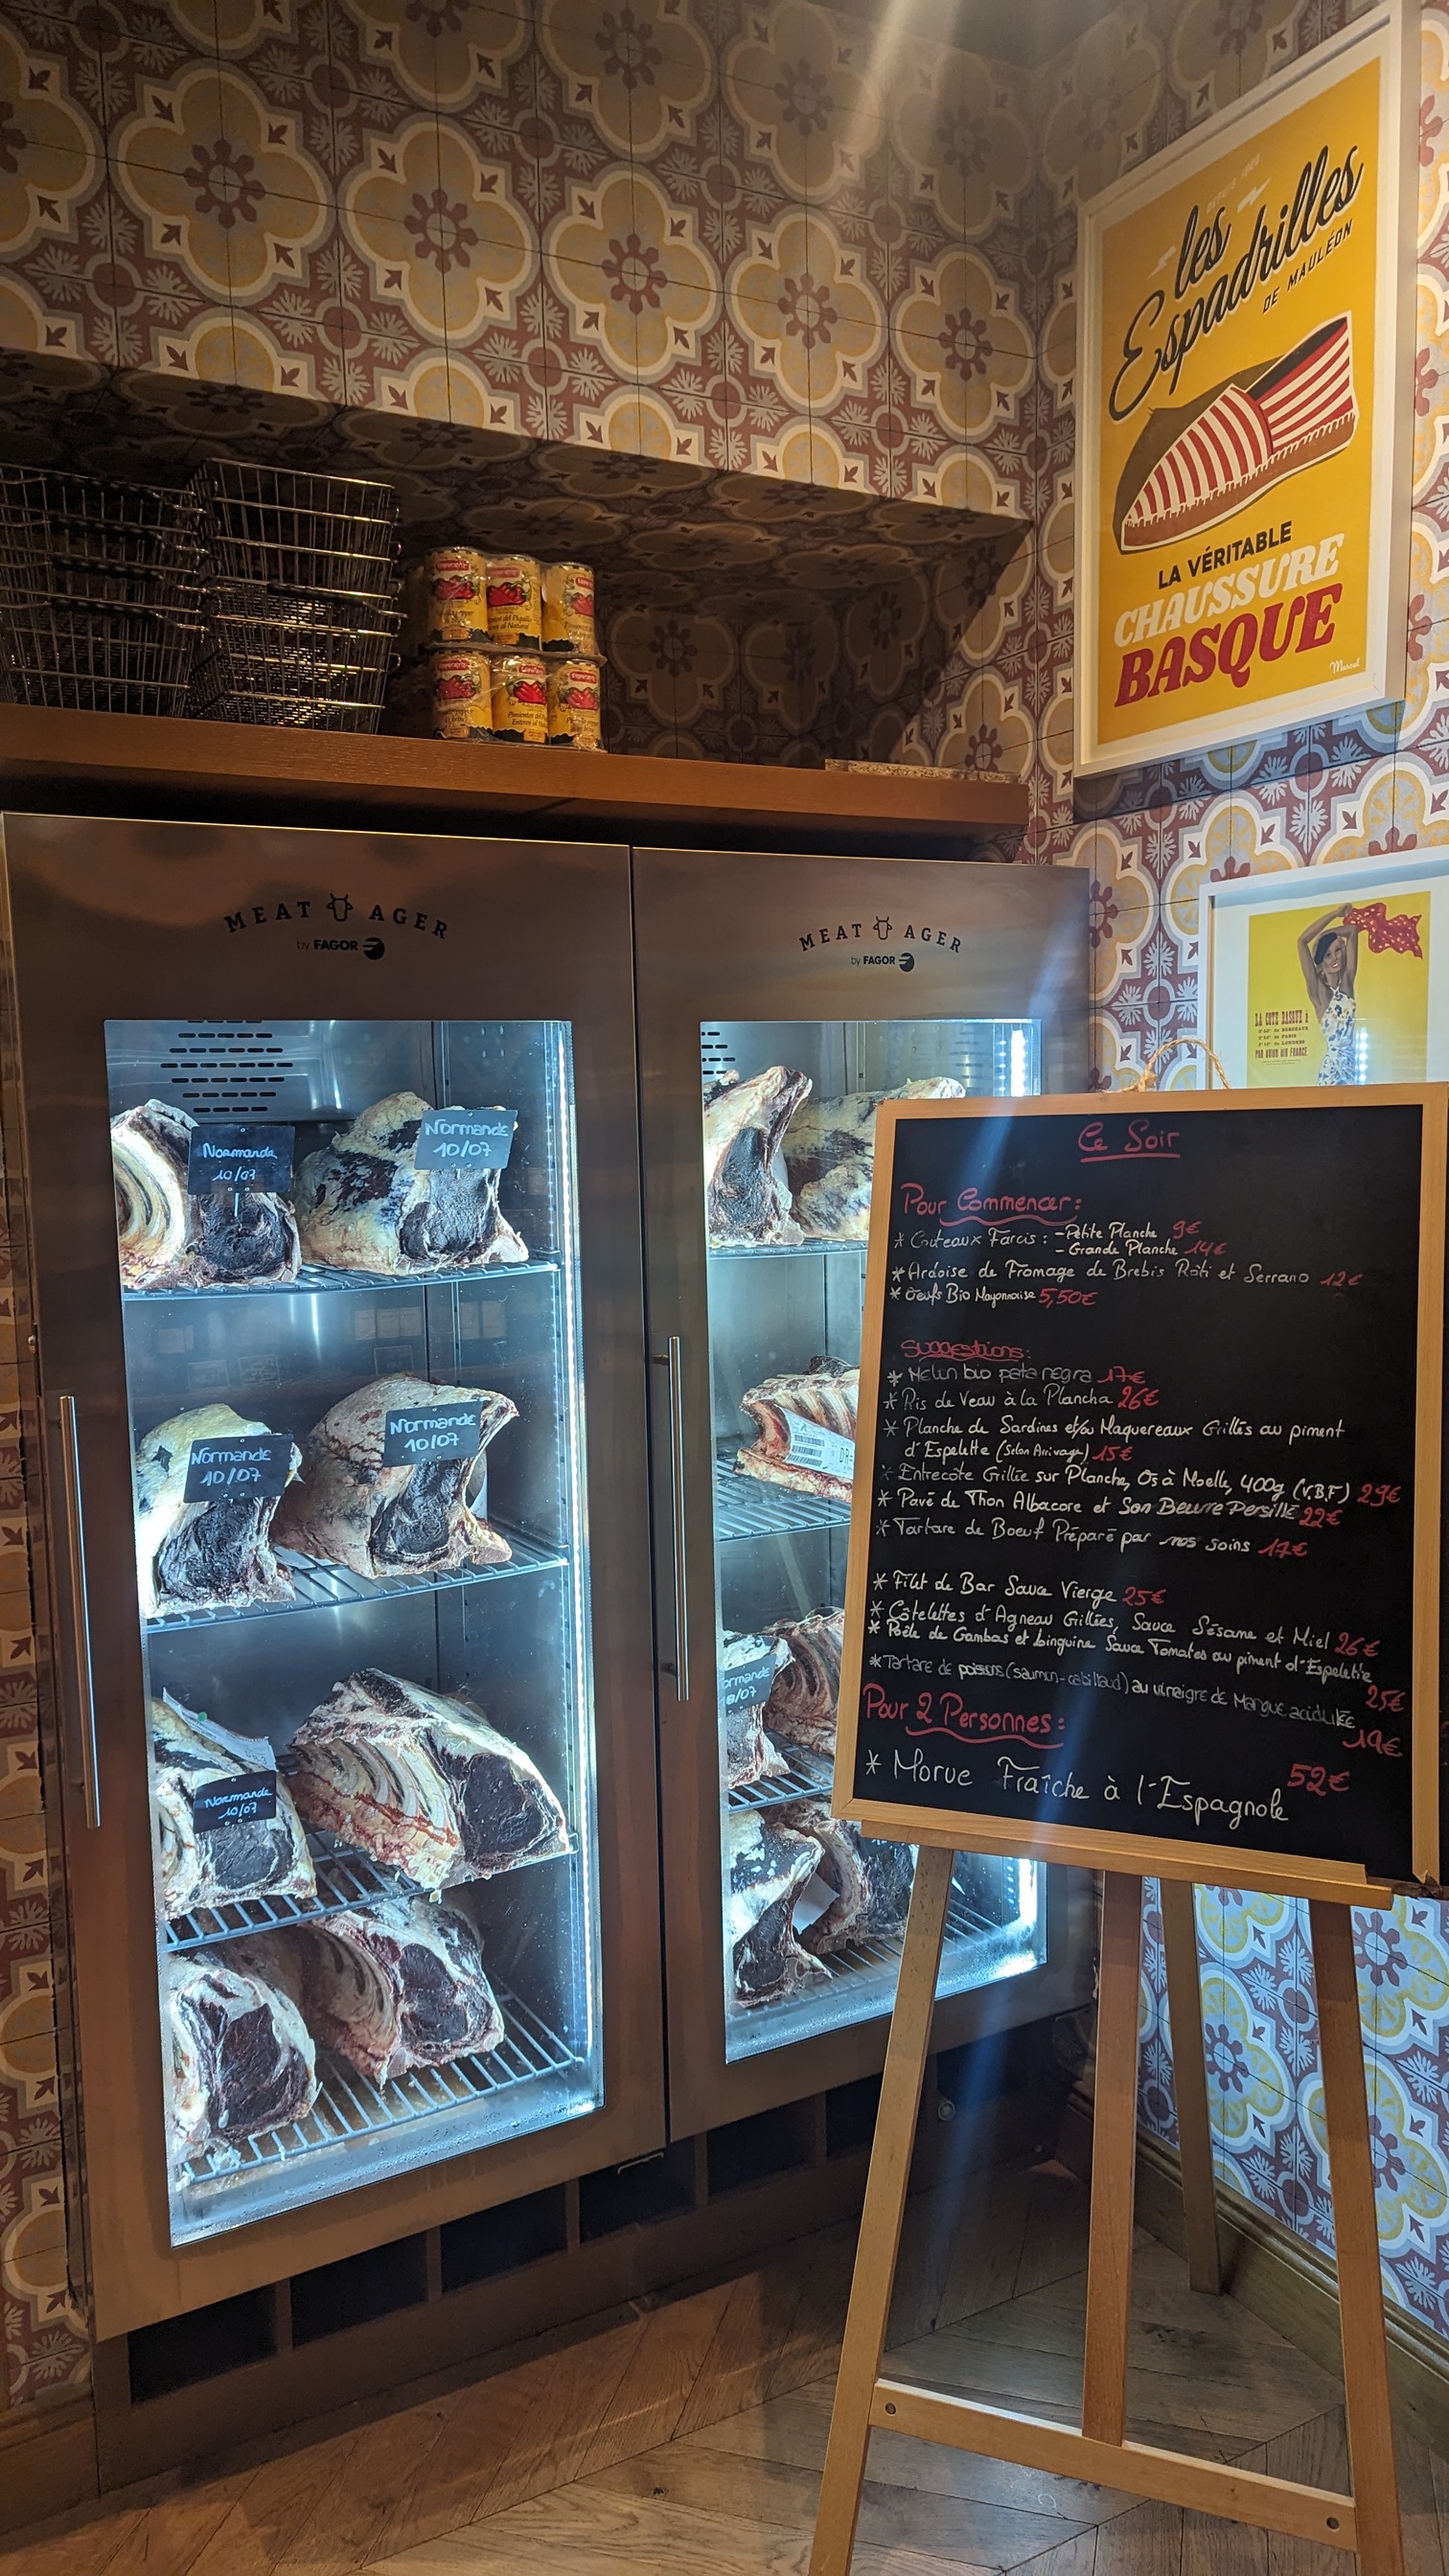 les
Espadrilles
DE MAULÉON
LA VÉRITABLE
CHAUSSURE
BASQUE
Marcel
Pimientos del Piquillo
Enteros al Natural
MEAT AGER
by FAGOR
MEAT AGER
by FAGOR
LA COTE BASQUE à
PAR AVION AIR FRANCE
Normande
10/07
Normande
10/07
Normande
10/07
Normande
10/07
Normande
10/07
Ce Soir
Pour Commencer:
* Couteaux Farcis: - Petite Planche 9€
- Grande Planche 14€
* Ardoise de Fromage de Brebis Rôti et Serrano 12€
* Oeufs Bio Mayonnaise 5,50€
Suggestions:
* Melon bio pata negra 17€
* Ris de Veau à la Plancha 26€
* Planche de Sardines et/ou Maquereaux Grillés au piment
d'Espelette (Selon Arrivage) 15€
* Entrecôte Grillée sur Planche, Os à Moelle, 400g (V.B.F) 29€
* Pavé de Thon Albacore et Son Beurre Persillé 22€
* Tartare de Boeuf Préparé par nos soins 17€
* Filet de Bar Sauce Vierge 25€
* Côtelettes d'Agneau Grillées, Sauce Sésame et Miel 26€
* Poêle de Gambas et Linguine Sauce Tomates au piment d'Espelette
25€
* Tartare de poissons (saumon-cabillaud) au vinaigre de Mangue acidulée
19€
Pour 2 Personnes:
* Morue Fraîche à l'Espagnole 52€